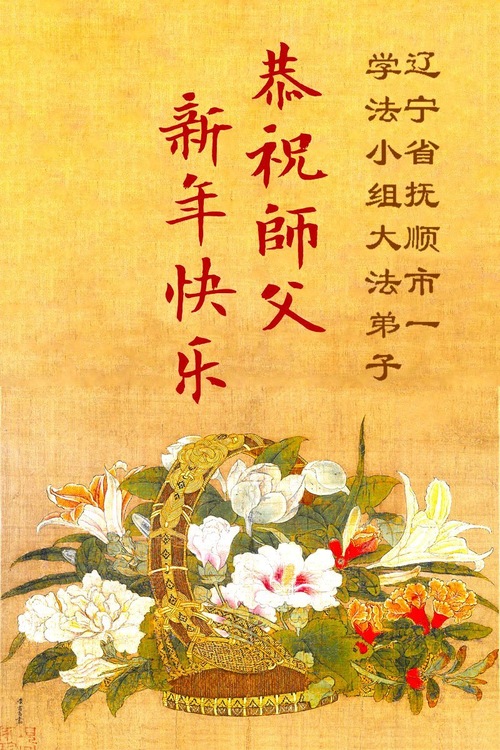 辽宁省抚顺市一
学法小组大法弟子
恭祝師父
新年快乐